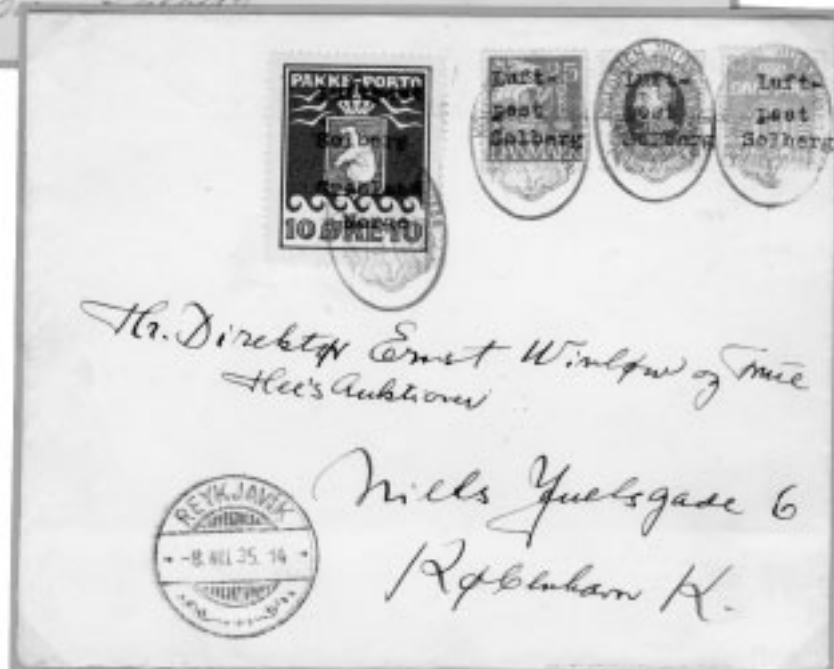 PAKKE-PORTO
Solberg
Grønland
Norge
10 ØRE 10
25
Luft-
post
Solberg
Luft-
post
Solberg
Luft-
post
Solberg
Hr. Direktør Ernst Winløw og Frue
Hee's Auktioner
Niels Juelsgade 6
København K.
REYKJAVIK
-8. VIII. 35. 14